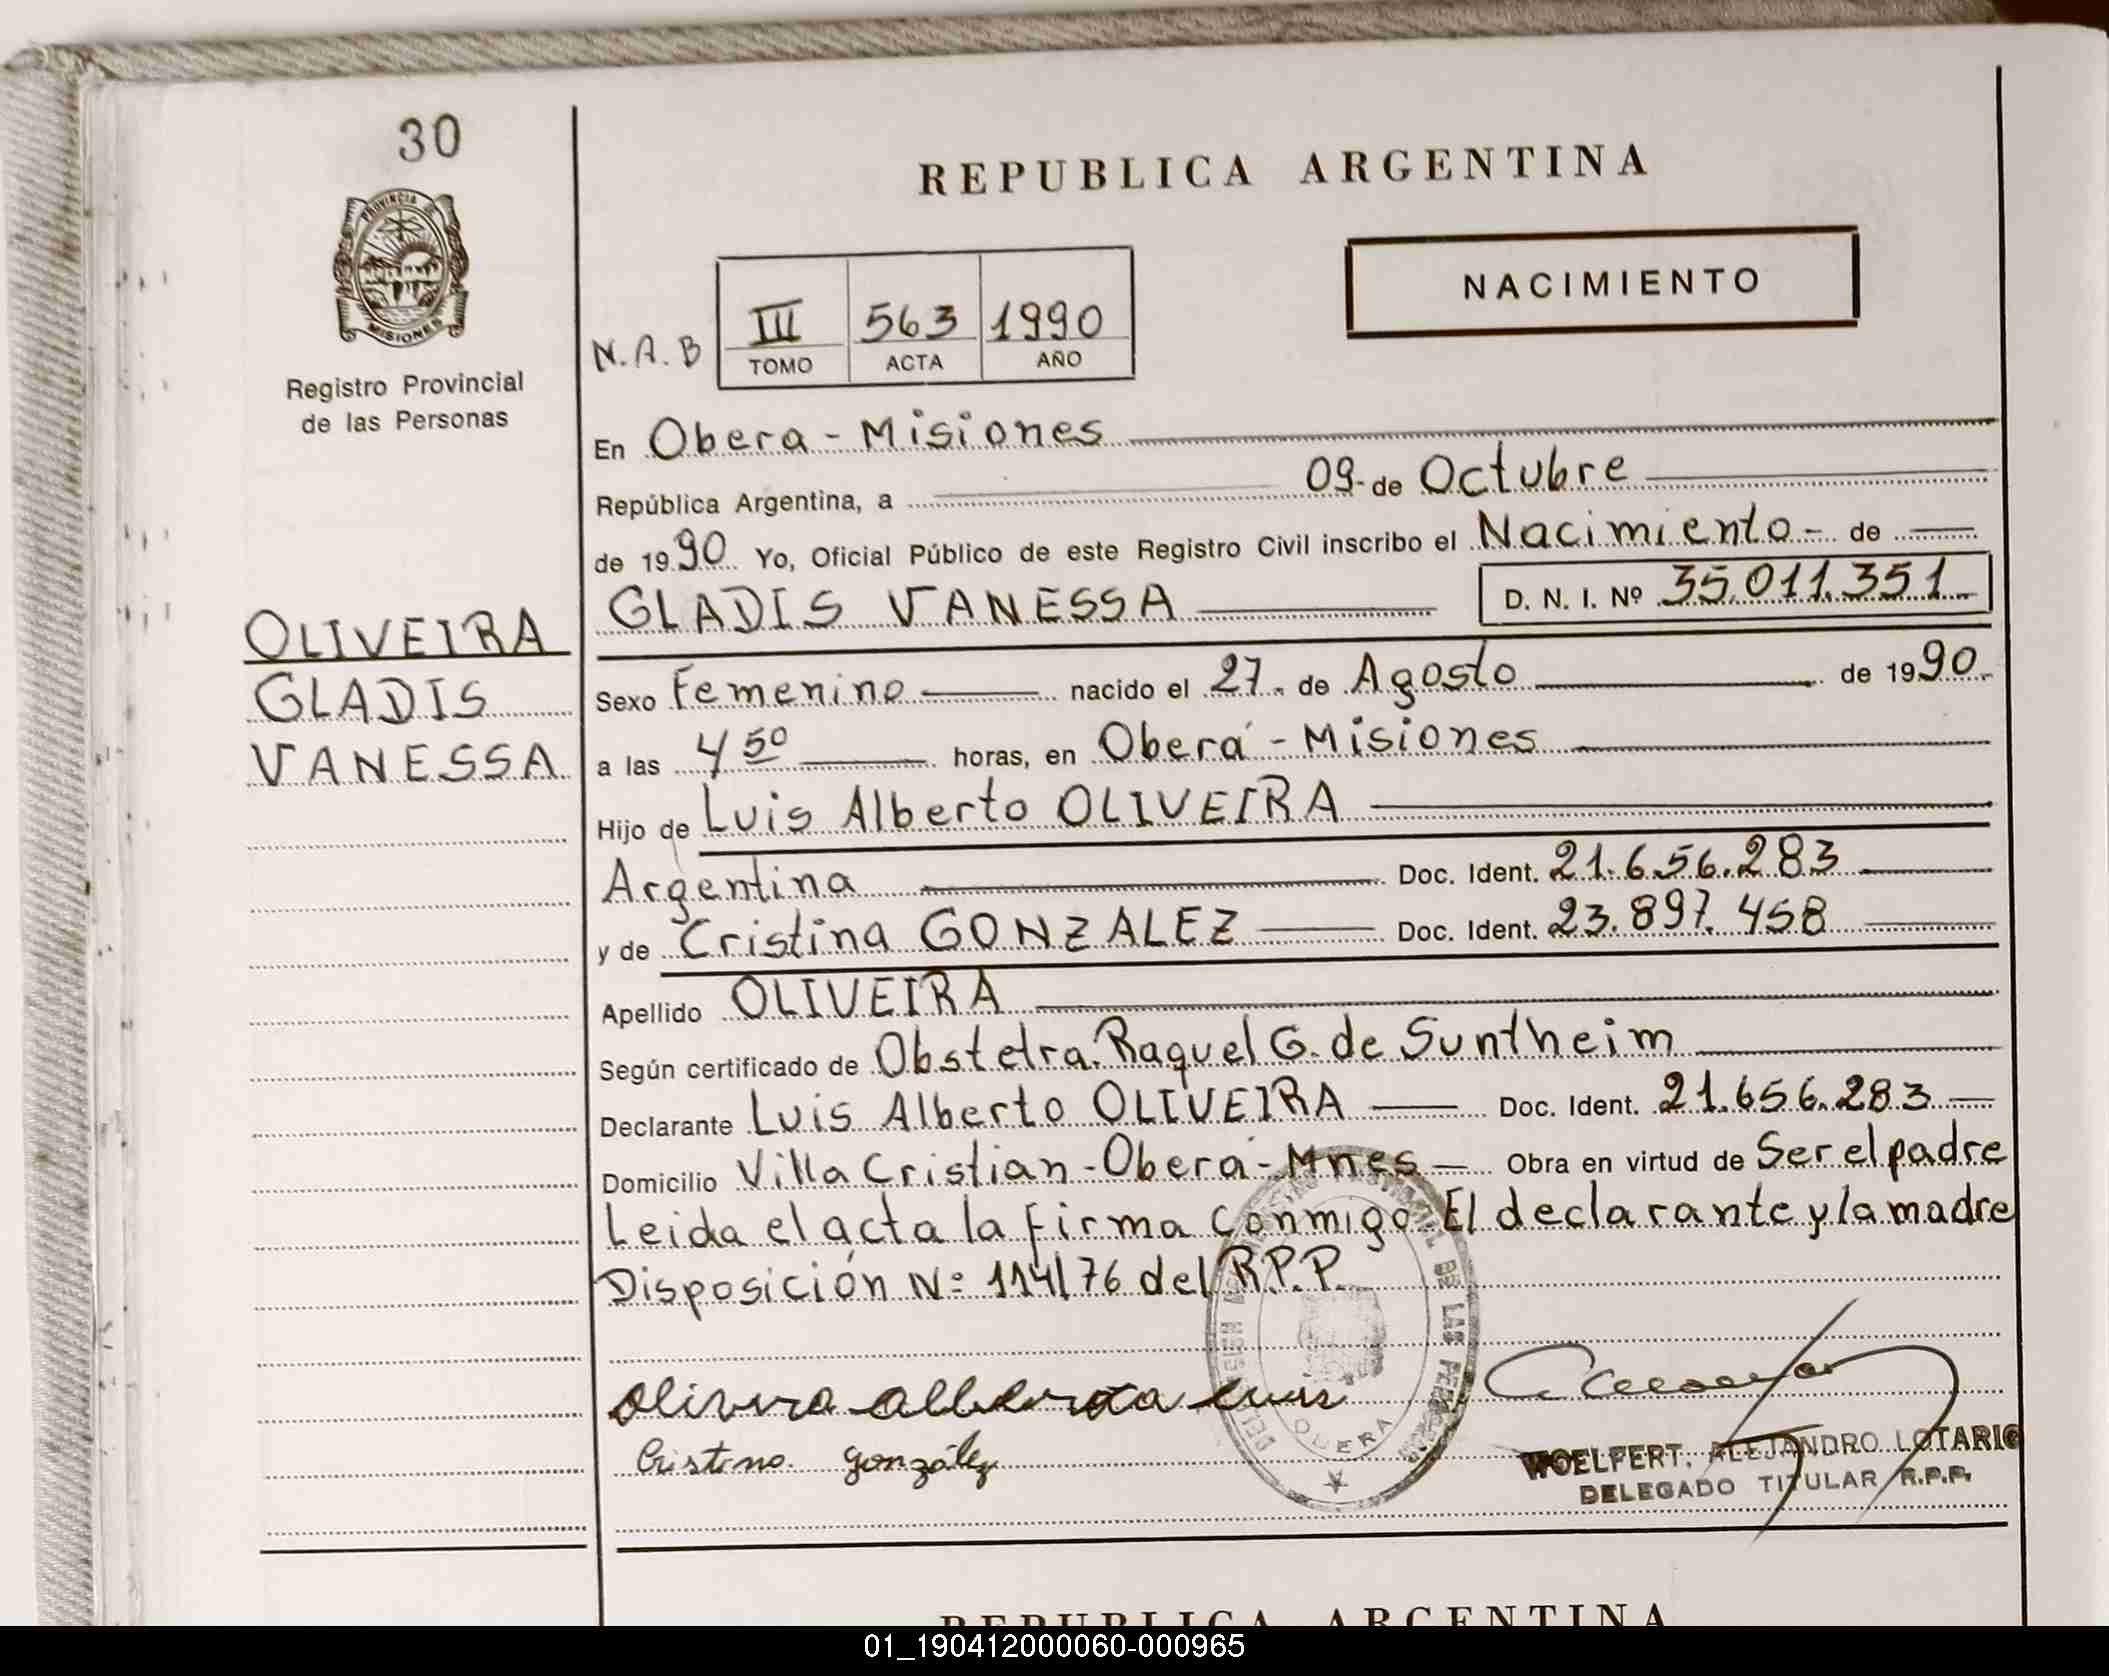 30
REPUBLICA ARGENTINA
PROVINCIA DE
MISIONES
NACIMIENTO
N.A.B
III 563 1990
TOMO ACTA AÑO
Registro Provincial
de las Personas
En Obera - Misiones
República Argentina, a 09- de Octubre
de 1990. Yo, Oficial Público de este Registro Civil inscribo el Nacimiento - de
GLADIS VANESSA D. N. I. Nº 35.011.351
OLIVEIRA
GLADIS
VANESSA
Sexo Femenino nacido el 27. de Agosto de 1990.
a las 4 50 horas, en Oberá - Misiones
Hijo de Luis Alberto OLIVEIRA
Argentina Doc. Ident. 21.656.283
y de Cristina GONZALEZ Doc. Ident. 23.897.458
Apellido OLIVEIRA
Según certificado de Obstetra. Raquel G. de Suntheim
Declarante Luis Alberto OLIVEIRA Doc. Ident. 21.656.283
Domicilio Villa Cristian - Oberá - Mnes Obra en virtud de Ser el padre
Leida el acta la firma Conmigo El declarante y la madre
Disposición Nº 114/76 del R.P.P.
DE LAS PERSONAS
OBERA
Cristina gonzález
WOELFERT, ALEJANDRO LOTARIO
DELEGADO TITULAR R.P.P.
REPUBLICA ARGENTINA
01_190412000060-000965